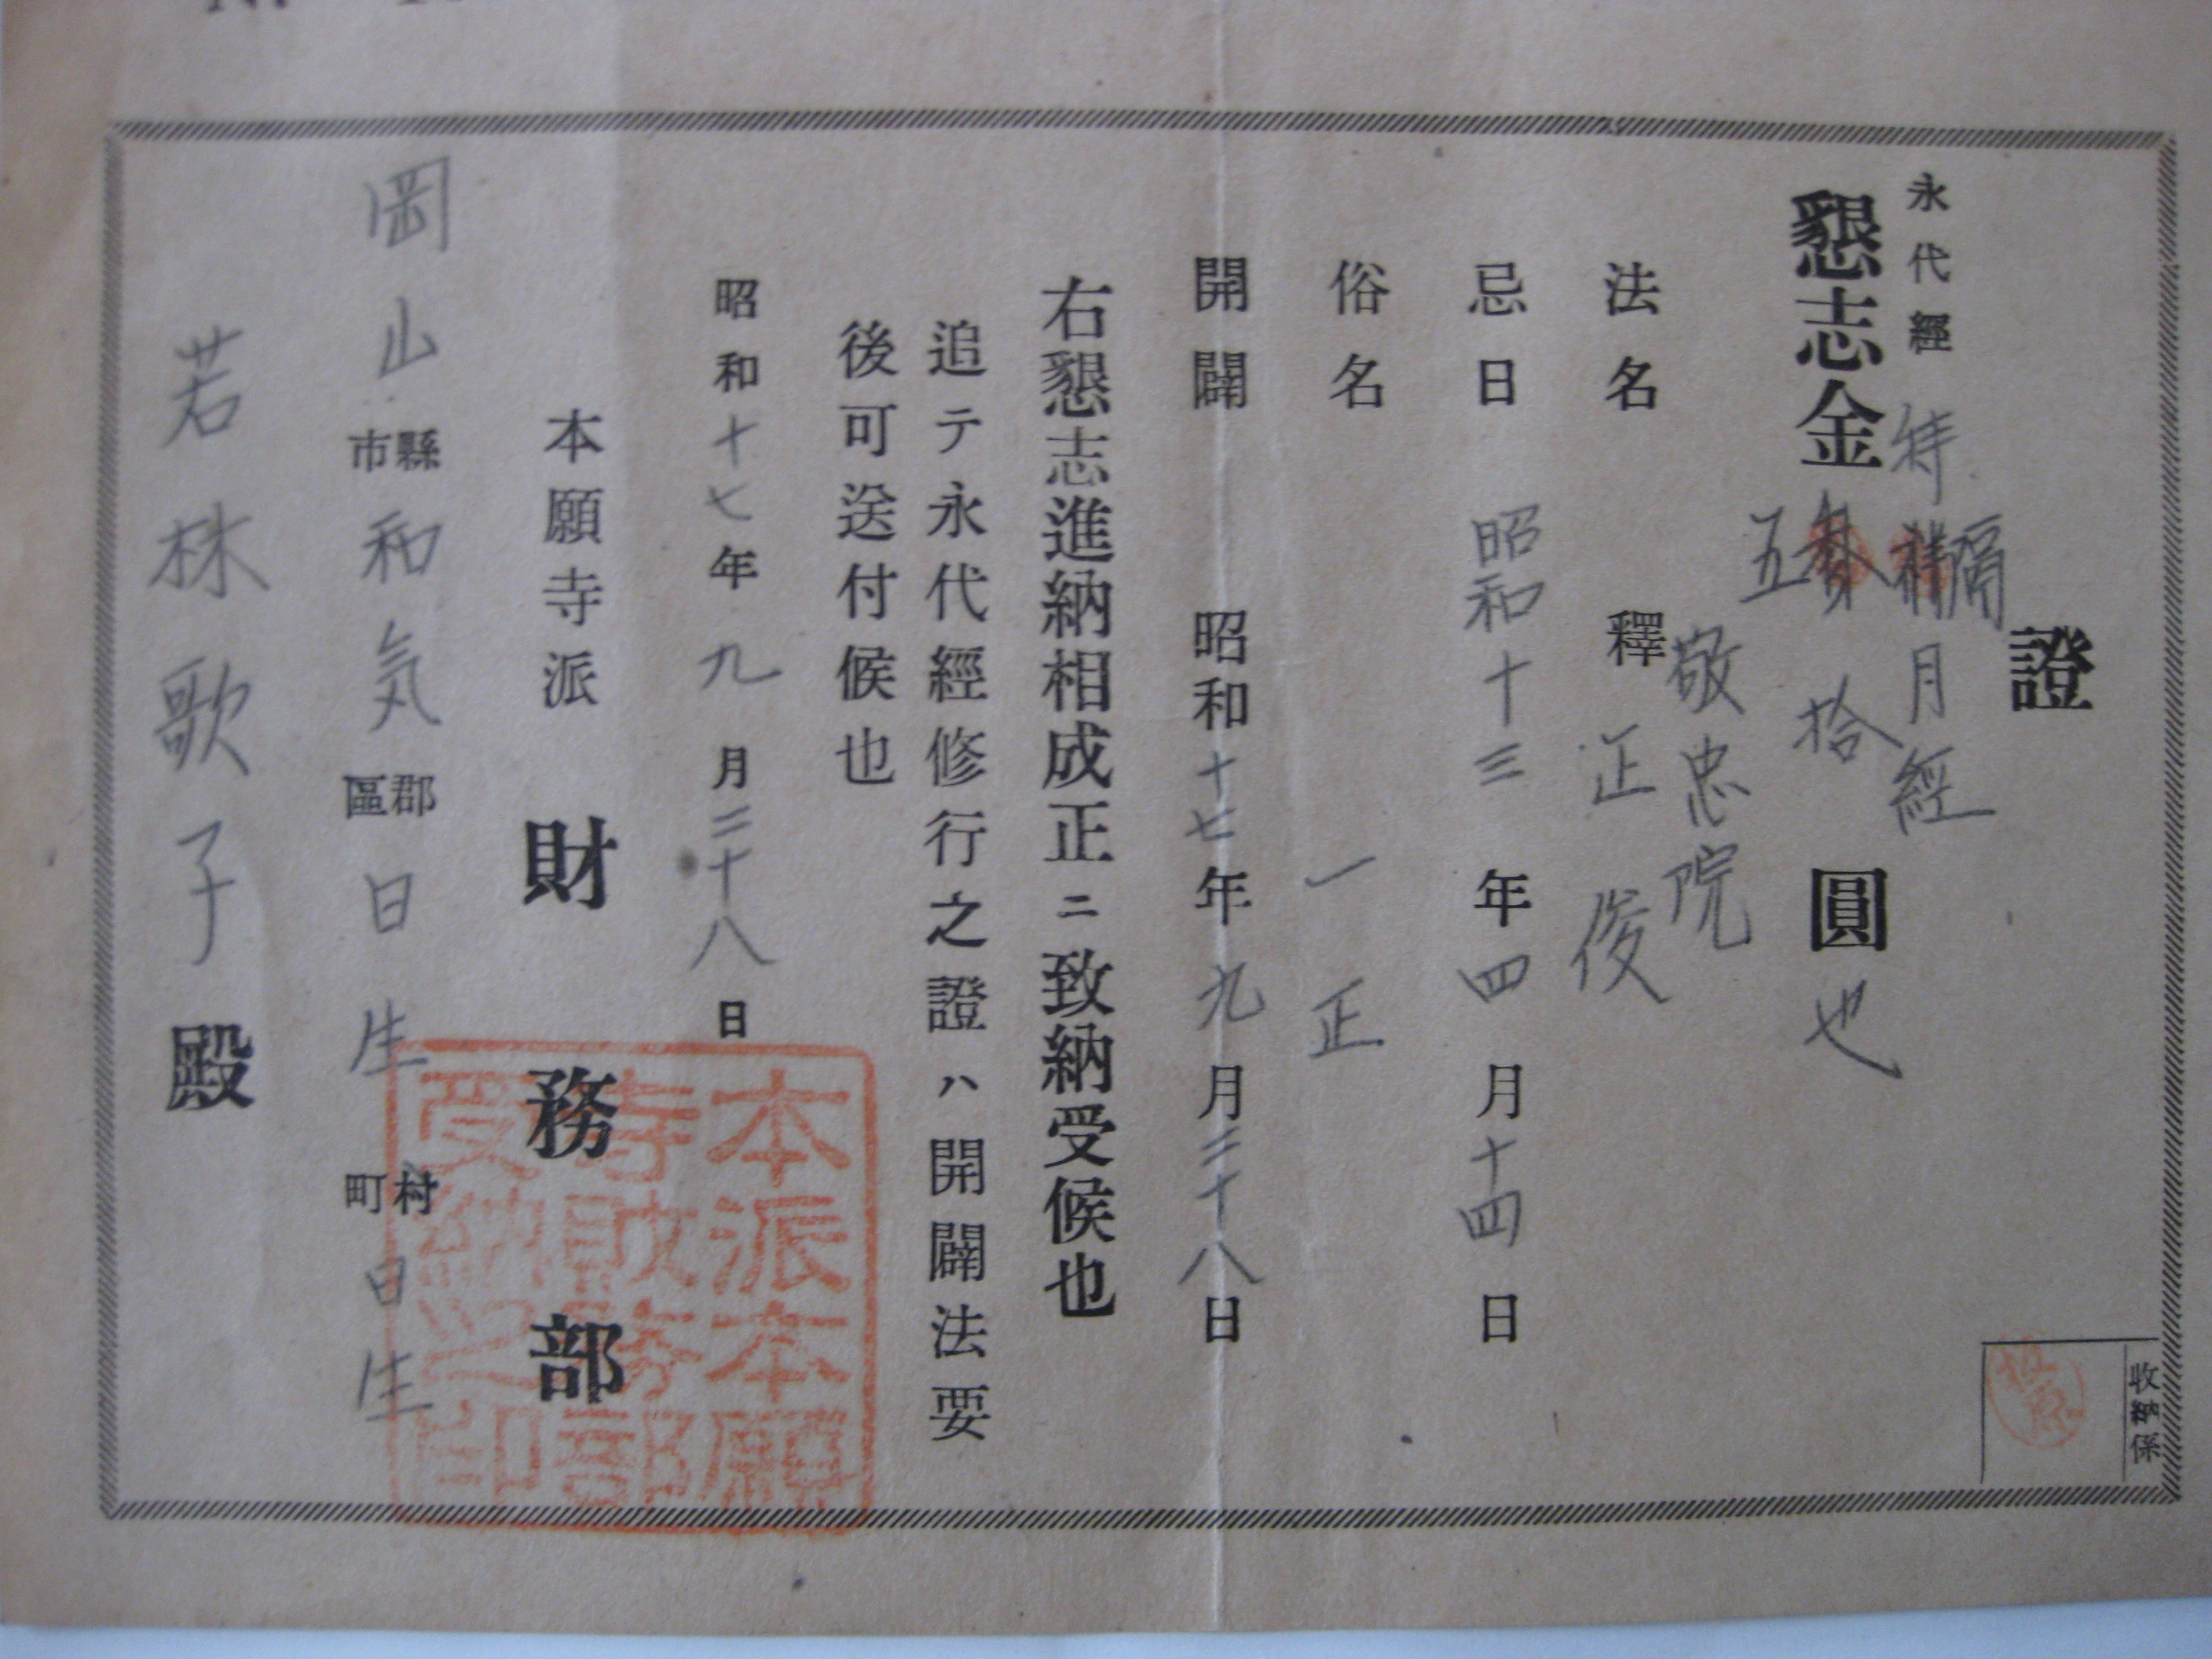 證
永代經 特隔月經
懇志金五拾圓也
敬忠院
法名 釋正俊
忌日 昭和十三年四月十四日
俗名 一正
開闢 昭和十七年九月二十八日
右懇志進納相成正ニ致納受候也
追テ永代經修行之證ハ開闢法要
後可送付候也
昭和十七年九月二十八日
本願寺派 財務部
岡山縣市和氣郡區日生村町日生
若林歌子殿
收納係
本派本願
寺財務部
受納之印